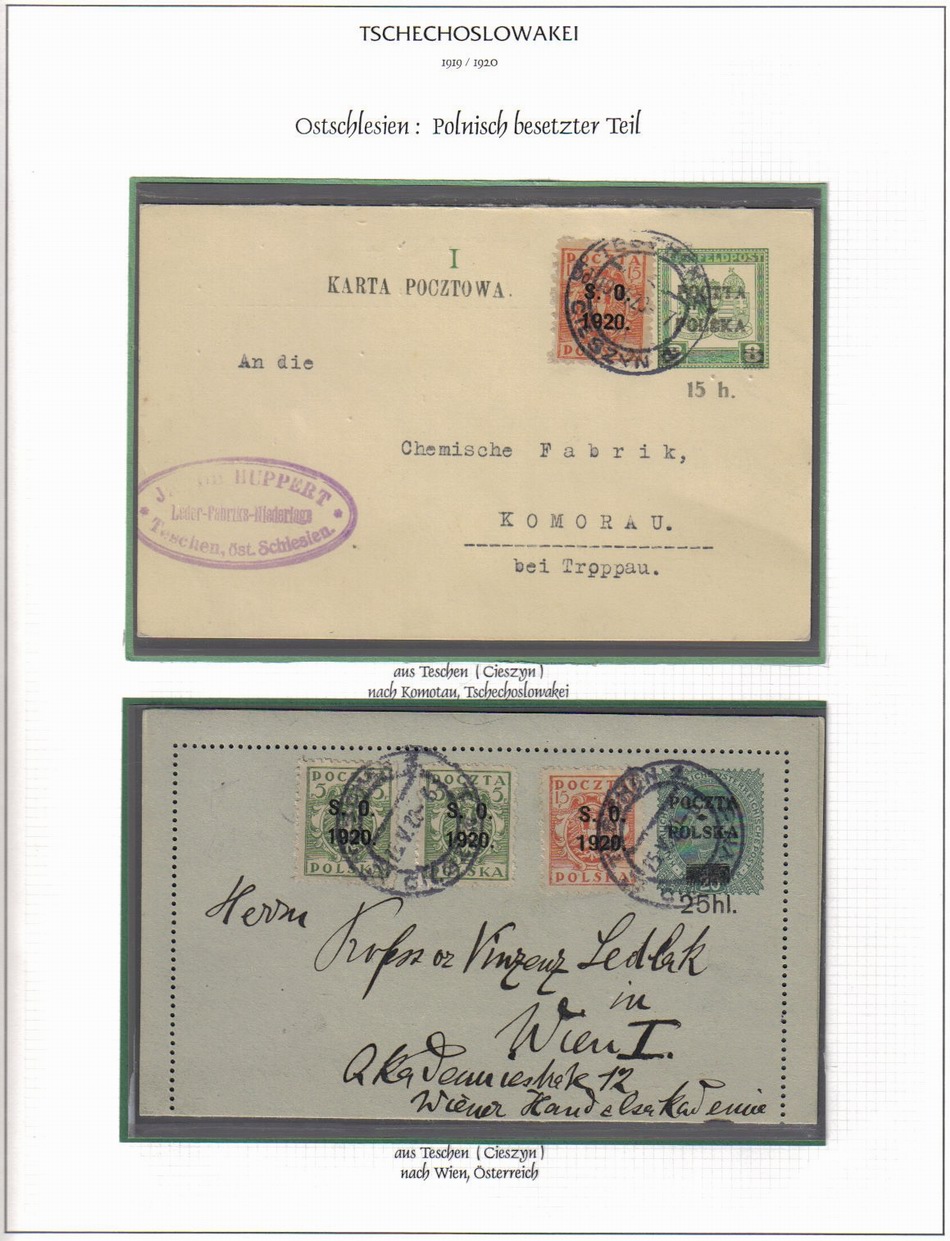 TSCHECHOSLOWAKEI
1919 / 1920
Ostschlesien : Polnisch besetzter Teil
I
KARTA POCZTOWA.
POCZTA
15 15
S. O.
1920.
CIESZYN
FELDPOST
POCZTA
POLSKA
8 8
15 h.
An die
Chemische Fabrik,
KOMORAU.
bei Troppau.
HUPPERT
Leder-Fabriks-Niederlage
Teschen, öst. Schlesien.
aus Teschen ( Cieszyn )
nach Komotau, Tschechoslowakei
POCZTA
5 5
S. O.
1920.
POLSKA
POCZTA
5
S. O.
1920.
POLSKA
POCZTA
15
S. O.
1920.
POLSKA
POCZTA
POLSKA
25hl.
Herrn
Professor Vinzenz Sedlak
in
Wien I.
Akademiestraße 12
Wiener Handelsakademie
aus Teschen ( Cieszyn )
nach Wien, Österreich